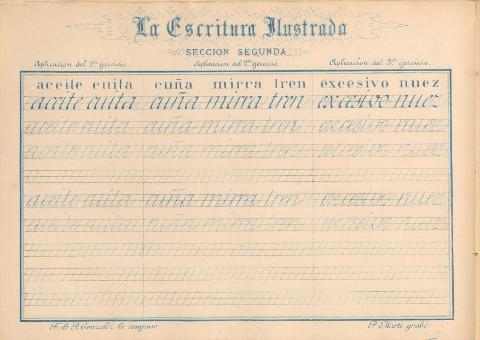 La Escritura Ilustrada
SECCION SEGUNDA.
Aplicación del 1er ejercicio. Aplicación del 2º ejercicio. Aplicación del 3er ejercicio.
aceite cuita cuña mirra tren excesivo nuez
aceite cuita cuña mirra tren excesivo nuez
aceite cuita cuña mirra tren excesivo nuez
aceite cuita cuña mirra tren excesivo nuez
aceite cuita cuña mirra tren excesivo nuez
aceite cuita cuña mirra tren excesivo nuez
F. de P. Gonzalez, lo compuso P. Marti grabó